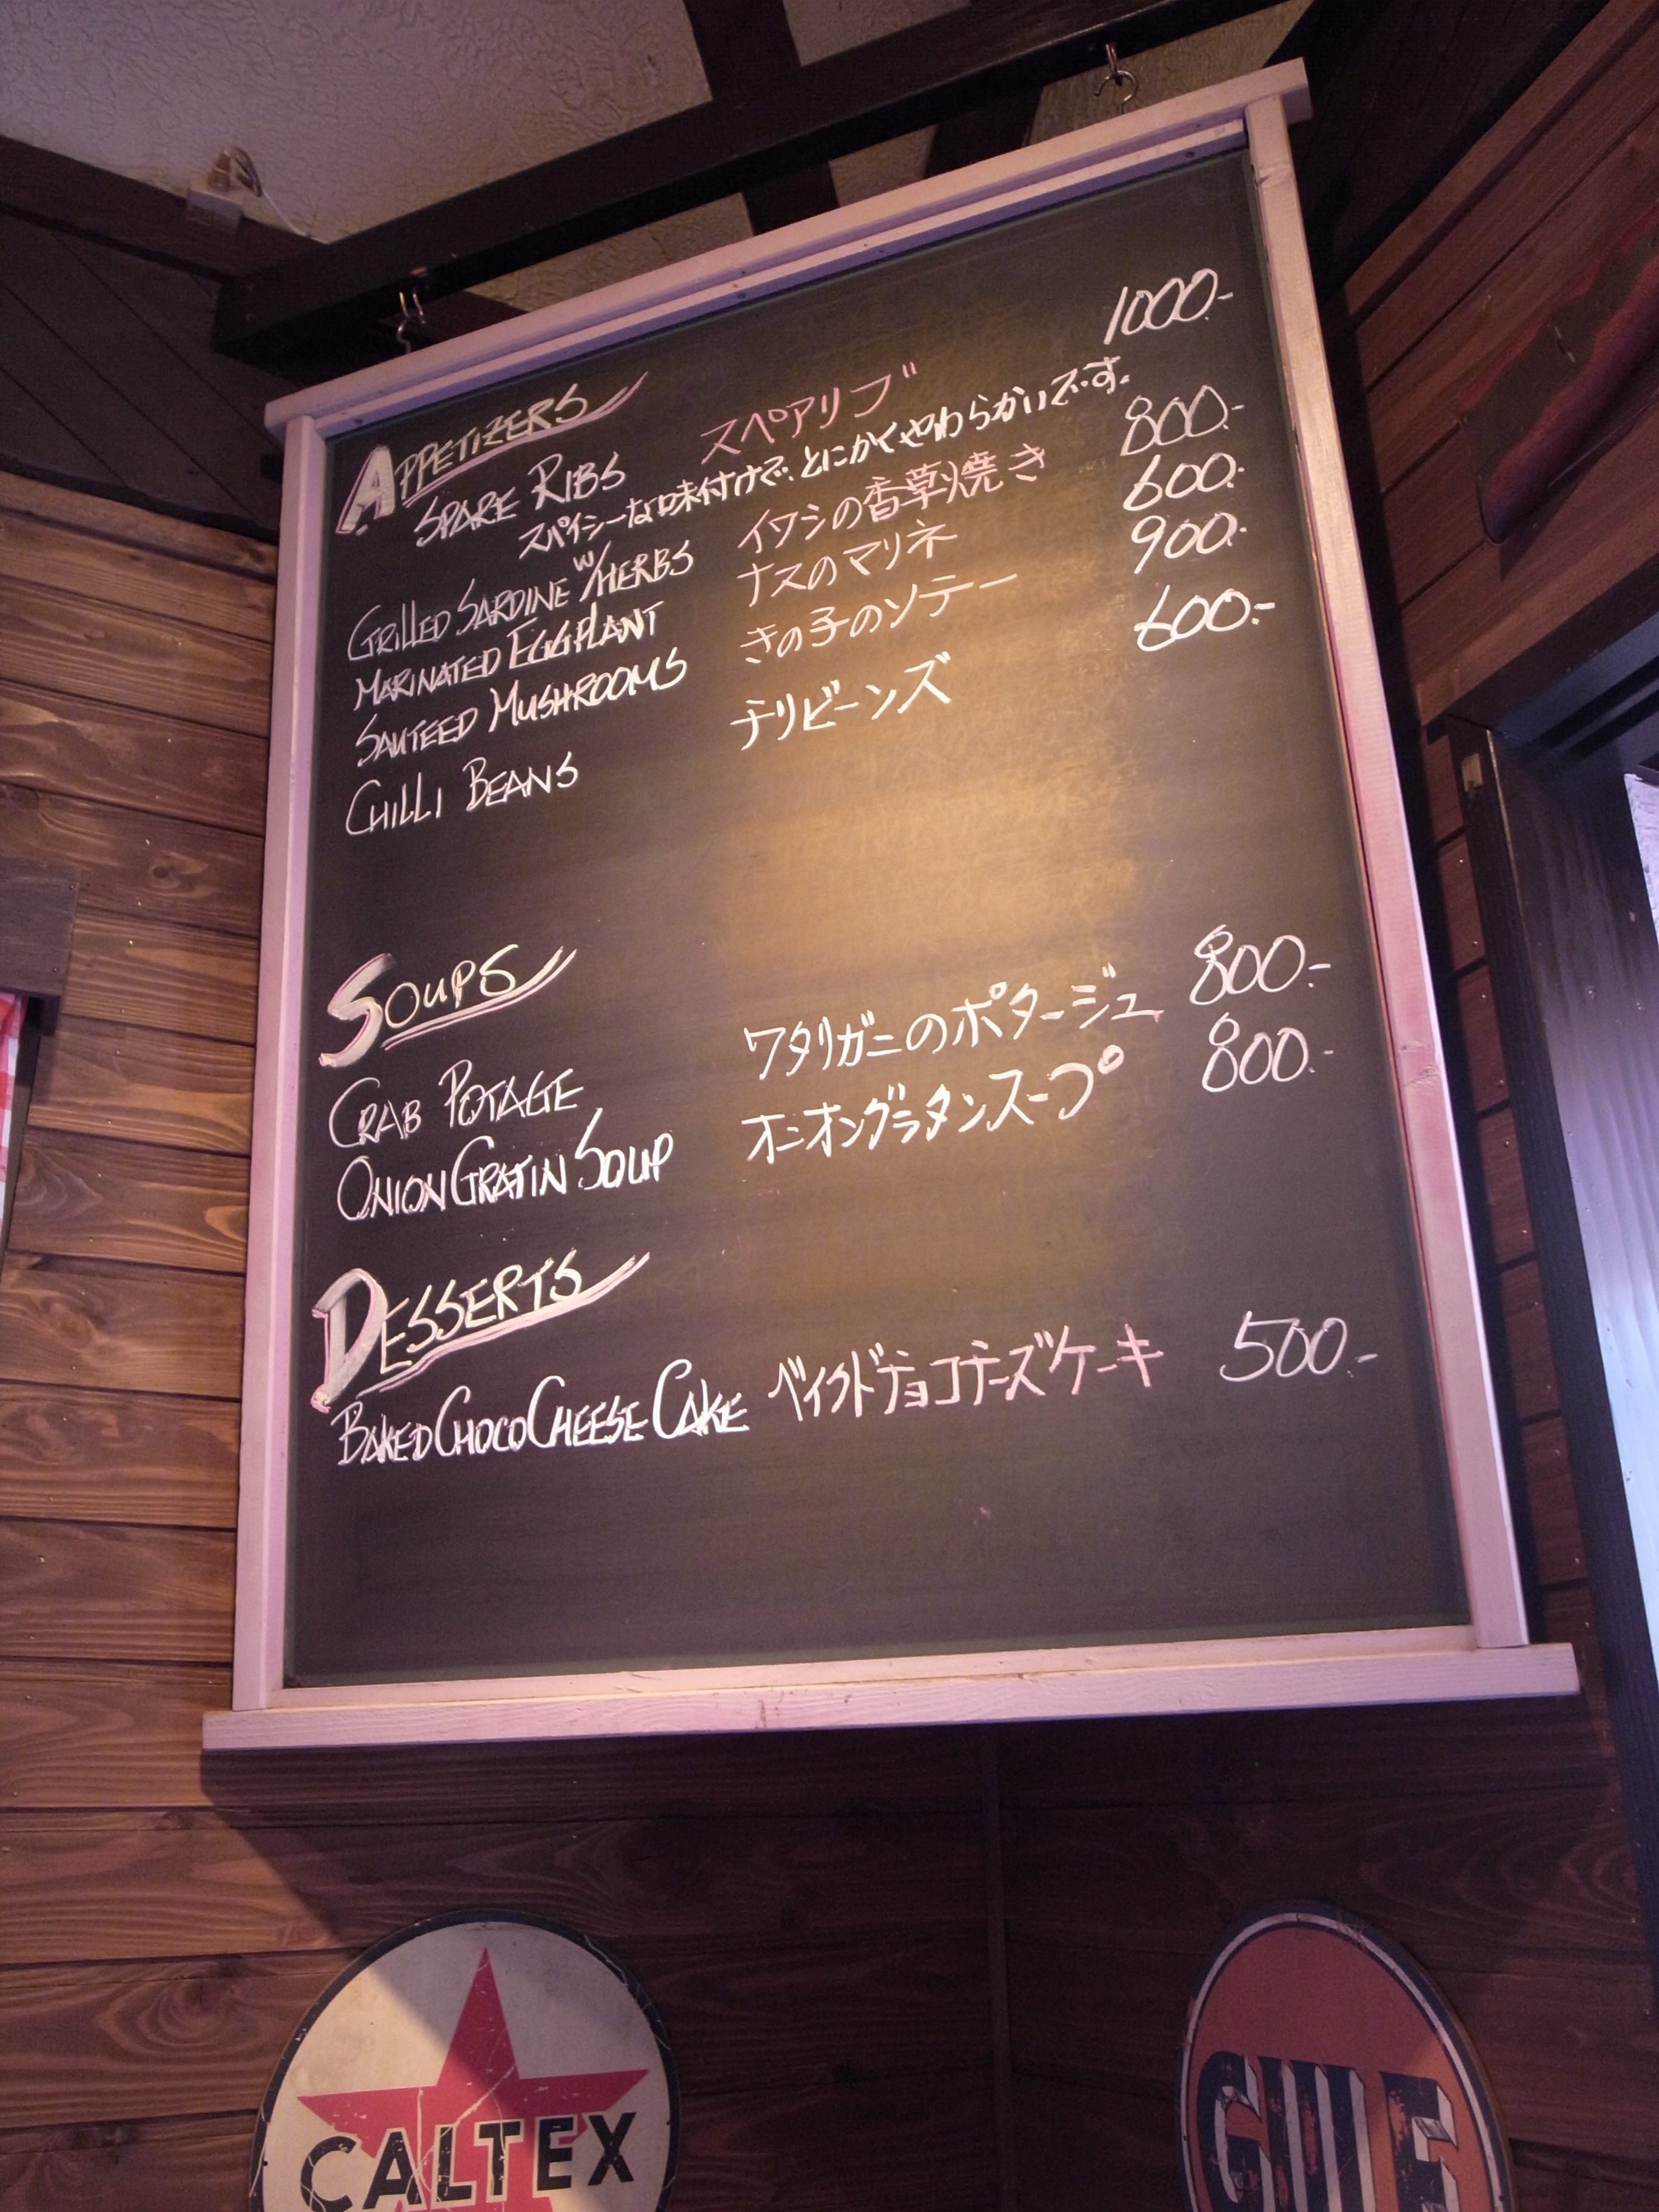 APPETIZERS
SPARE RIBS スペアリブ 1000.-
スパイシーな味付けで、とにかくやわらかいです。
GRILLED SARDINE W/HERBS イワシの香草焼き 800.-
MARINATED EGGPLANT ナスのマリネ 600.-
SAUTEED MUSHROOMS きの子のソテー 900.-
CHILLI BEANS チリビーンズ 600.-
SOUPS
CRAB POTAGE ワタリガニのポタージュ 800.-
ONION GRATIN SOUP オニオングラタンスープ 800.-
DESSERTS
BAKED CHOCO CHEESE CAKE ベイクドチョコチーズケーキ 500.-
CALTEX
GULF